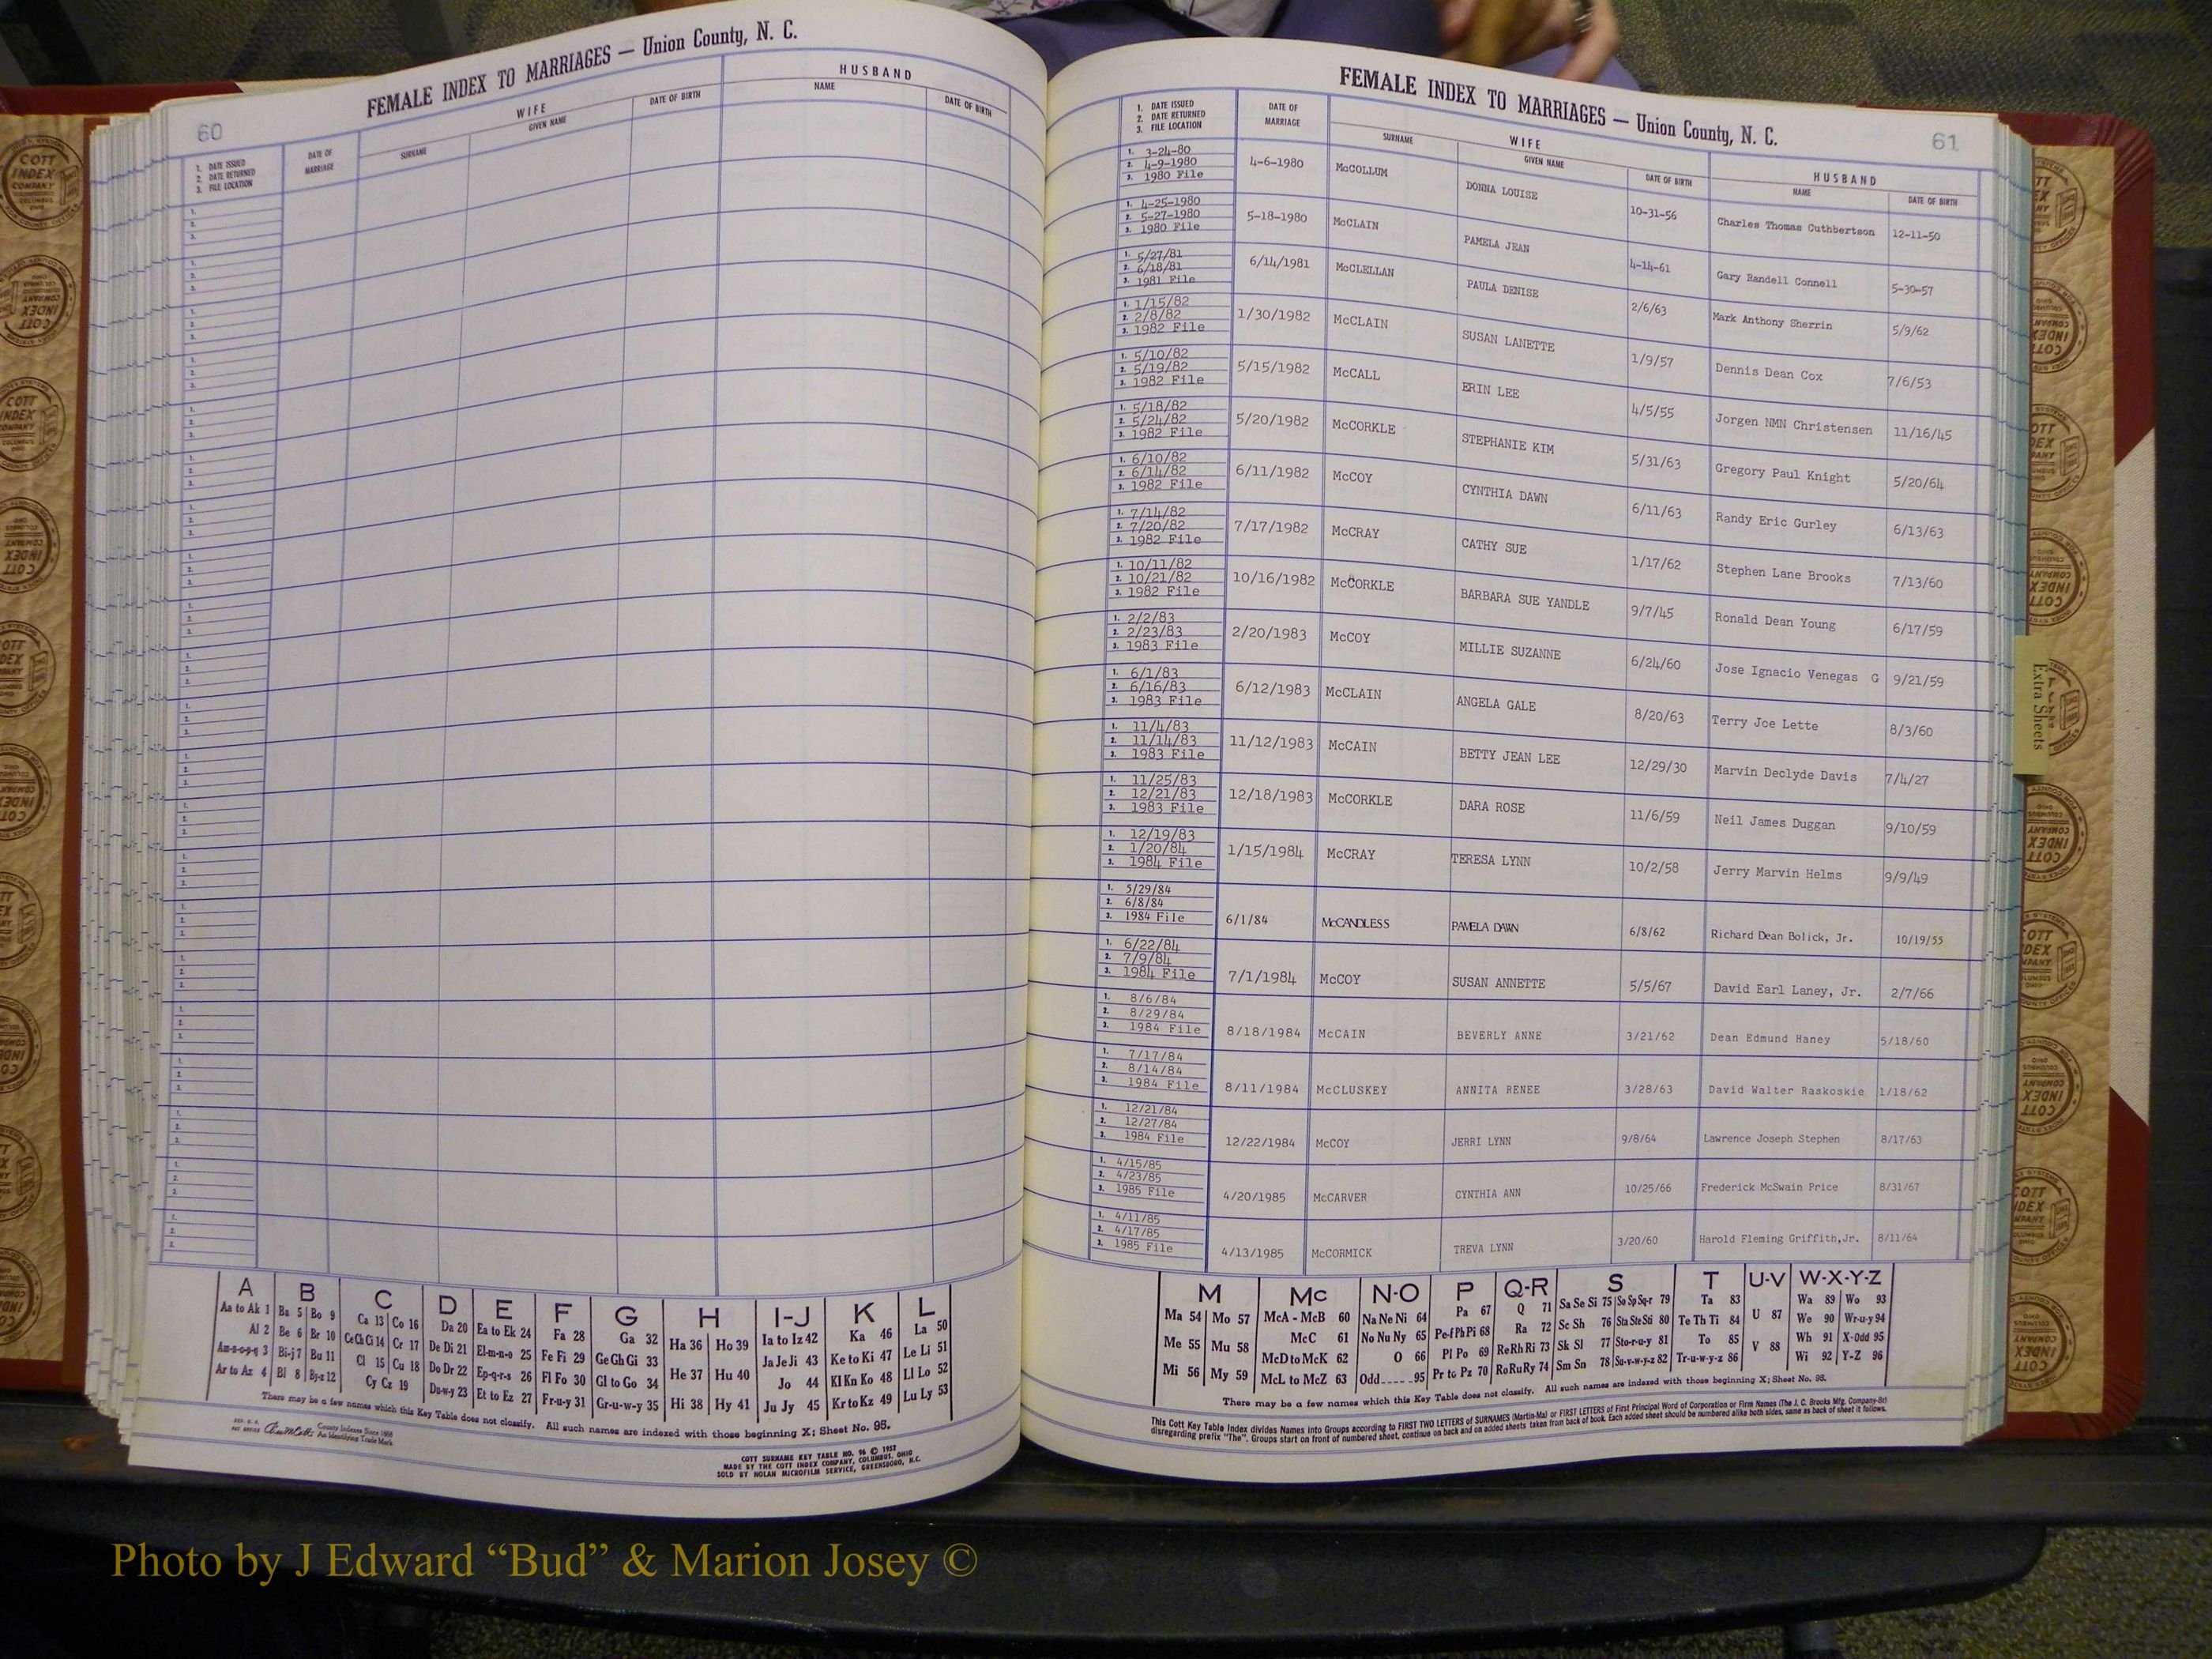 60
FEMALE INDEX TO MARRIAGES — Union County, N. C.
1. DATE ISSUED
2. DATE RETURNED
3. FILE LOCATION
DATE OF MARRIAGE
WIFE
SURNAME GIVEN NAME DATE OF BIRTH
HUSBAND
NAME DATE OF BIRTH
A B C D E F G H I-J K L
Aa to Ak 1 Ba 5 Bo 9 Ca 13 Co 16 Da 20 Ea to Ek 24 Fa 28 Ga 32 Ha 36 Ho 39 Ia to Iz 42 Ka 46 La 50
Al 2 Be 6 Br 10 Ce Ch Ci 14 Cr 17 De Di 21 El-m-n-o 25 Fe Fi 29 Ge Gh Gi 33 He 37 Hu 40 Ja Je Ji 43 Ke to Ki 47 Le Li 51
Am-n-o-p-q 3 Bi-j 7 Bu 11 Cl 15 Cu 18 Do Dr 22 Ep-q-r-s 26 Fl Fo 30 Gl to Go 34 Hi 38 Hy 41 Jo 44 Kl Kn Ko 48 Ll Lo 52
Ar to Az 4 Bl 8 By-z 12 Cy Cz 19 Du-w-y 23 Et to Ez 27 Fr-u-y 31 Gr-u-w-y 35 Ju Jy 45 Kr to Kz 49 Lu Ly 53
There may be a few names which this Key Table does not classify. All such names are indexed with those beginning X; Sheet No. 95.
County Indexes Since 1888
An Identifying Trade Mark
COTT SURNAME KEY TABLE NO. 96 © 1957
MADE BY THE COTT INDEX COMPANY, COLUMBUS, OHIO
SOLD BY NOLAN MICROFILM SERVICE, GREENSBORO, N.C.
FEMALE INDEX TO MARRIAGES — Union County, N. C.
61
1. DATE ISSUED
2. DATE RETURNED
3. FILE LOCATION
DATE OF MARRIAGE
WIFE
SURNAME GIVEN NAME DATE OF BIRTH
HUSBAND
NAME DATE OF BIRTH
1. 3-24-80
2. 4-9-1980
3. 1980 File
4-6-1980 McCOLLUM DONNA LOUISE 10-31-56 Charles Thomas Cuthbertson 12-11-50
1. 4-25-1980
2. 5-27-1980
3. 1980 File
5-18-1980 McCLAIN PAMELA JEAN 4-14-61 Gary Randell Connell 5-30-57
1. 5/27/81
2. 6/18/81
3. 1981 File
6/14/1981 McCLELLAN PAULA DENISE 2/6/63 Mark Anthony Sherrin 5/9/62
1. 1/15/82
2. 2/8/82
3. 1982 File
1/30/1982 McCLAIN SUSAN LANETTE 1/9/57 Dennis Dean Cox 7/6/53
1. 5/10/82
2. 5/19/82
3. 1982 File
5/15/1982 McCALL ERIN LEE 4/5/55 Jorgen NMN Christensen 11/16/45
1. 5/18/82
2. 5/24/82
3. 1982 File
5/20/1982 McCORKLE STEPHANIE KIM 5/31/63 Gregory Paul Knight 5/20/64
1. 6/10/82
2. 6/14/82
3. 1982 File
6/11/1982 McCOY CYNTHIA DAWN 6/11/63 Randy Eric Gurley 6/13/63
1. 7/14/82
2. 7/20/82
3. 1982 File
7/17/1982 McCRAY CATHY SUE 1/17/62 Stephen Lane Brooks 7/13/60
1. 10/11/82
2. 10/21/82
3. 1982 File
10/16/1982 McCORKLE BARBARA SUE YANDLE 9/7/45 Ronald Dean Young 6/17/59
1. 2/2/83
2. 2/23/83
3. 1983 File
2/20/1983 McCOY MILLIE SUZANNE 6/24/60 Jose Ignacio Venegas G 9/21/59
1. 6/1/83
2. 6/16/83
3. 1983 File
6/12/1983 McCLAIN ANGELA GALE 8/20/63 Terry Joe Lette 8/3/60
1. 11/4/83
2. 11/14/83
3. 1983 File
11/12/1983 McCAIN BETTY JEAN LEE 12/29/30 Marvin Declyde Davis 7/4/27
1. 11/25/83
2. 12/21/83
3. 1983 File
12/18/1983 McCORKLE DARA ROSE 11/6/59 Neil James Duggan 9/10/59
1. 12/19/83
2. 1/20/84
3. 1984 File
1/15/1984 McCRAY TERESA LYNN 10/2/58 Jerry Marvin Helms 9/9/49
1. 5/29/84
2. 6/8/84
3. 1984 File
6/1/84 McCANDLESS PAMELA DAWN 6/8/62 Richard Dean Bolick, Jr. 10/19/55
1. 6/22/84
2. 7/9/84
3. 1984 File
7/1/1984 McCOY SUSAN ANNETTE 5/5/67 David Earl Laney, Jr. 2/7/66
1. 8/6/84
2. 8/29/84
3. 1984 File
8/18/1984 McCAIN BEVERLY ANNE 3/21/62 Dean Edmund Haney 5/18/60
1. 7/17/84
2. 8/14/84
3. 1984 File
8/11/1984 McCLUSKEY ANNITA RENEE 3/28/63 David Walter Raskoskie 1/18/62
1. 12/21/84
2. 12/27/84
3. 1984 File
12/22/1984 McCOY JERRI LYNN 9/8/64 Lawrence Joseph Stephen 8/17/63
1. 4/15/85
2. 4/23/85
3. 1985 File
4/20/1985 McCARVER CYNTHIA ANN 10/25/66 Frederick McSwain Price 8/31/67
1. 4/11/85
2. 4/17/85
3. 1985 File
4/13/1985 McCORMICK TREVA LYNN 3/20/60 Harold Fleming Griffith,Jr. 8/11/64
M Mc N-O P Q-R S T U-V W-X-Y-Z
Ma 54 Mo 57 McA - McB 60 Na Ne Ni 64 Pa 67 Q 71 Sa Se Si 75 So Sp Sq-r 79 Ta 83 U 87 Wa 89 Wo 93
Me 55 Mu 58 McC 61 No Nu Ny 65 Pe-f Ph Pi 68 Ra 72 Sc Sh 76 Sta Ste Sti 80 Te Th Ti 84 V 88 We 90 Wr-u-y 94
Mi 56 My 59 McD to McK 62 O 66 Pl Po 69 Re Rh Ri 73 Sk Sl 77 Sto-r-u-y 81 To 85 Wh 91 X-Odd 95
McL to McZ 63 Odd 95 Pr to Pz 70 Ro Ru Ry 74 Sm Sn 78 Su-v-w-y-z 82 Tr-u-w-y-z 86 Wi 92 Y-Z 96
There may be a few names which this Key Table does not classify. All such names are indexed with those beginning X; Sheet No. 95.
This Cott Key Table Index divides Names Into Groups according to FIRST TWO LETTERS of SURNAMES (Martin-Ma) or FIRST LETTERS of First Principal Word of Corporation or Firm Names (The J. C. Brooks Mfg. Company-Br)
disregarding prefix "The". Groups start on front of numbered sheet, continue on back and on added sheets taken from back of book. Each added sheet should be numbered alike both sides, same as back of sheet it follows.
Extra Sheets
COTT INDEX COMPANY COLUMBUS OHIO
Photo by J Edward “Bud” & Marion Josey ©